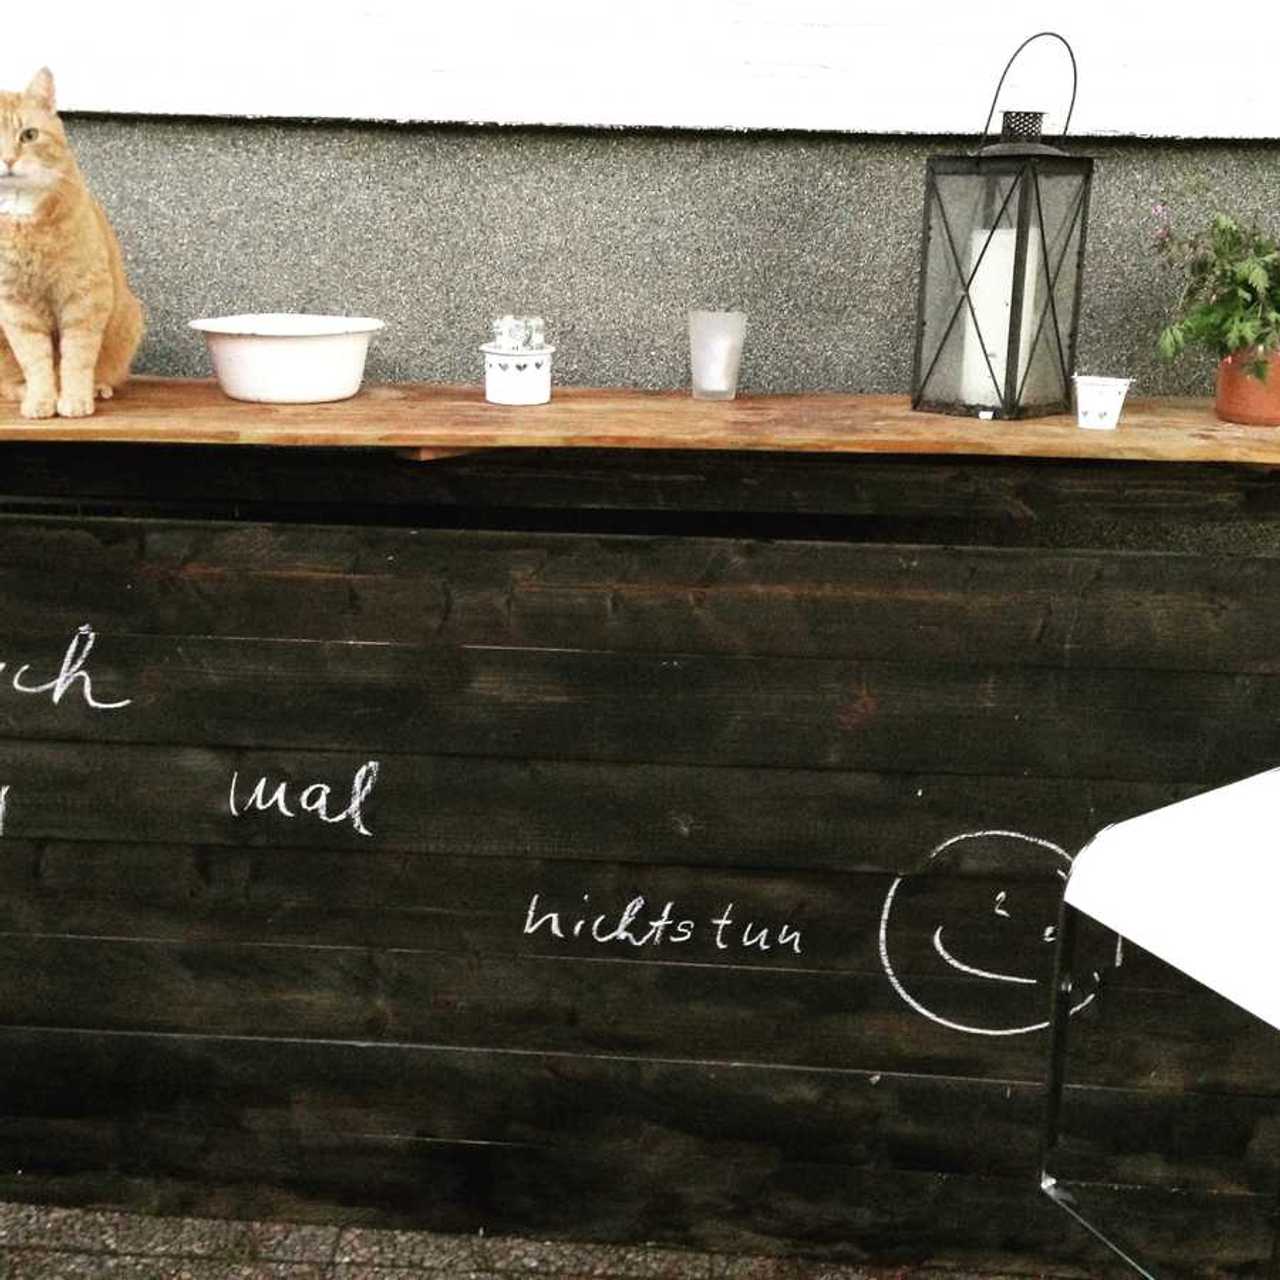 ch
mal
nichtstun